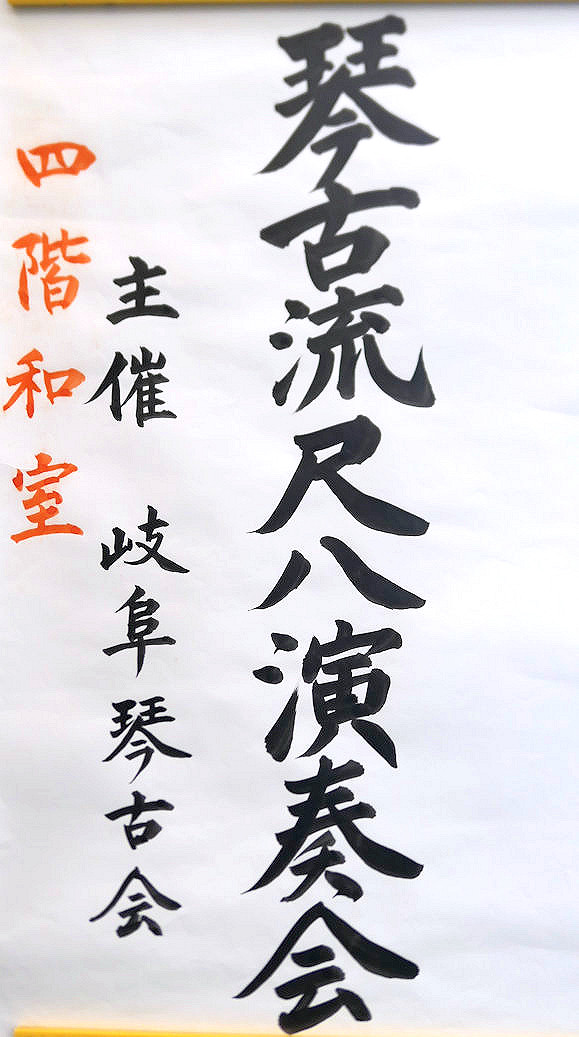 琴古流尺八演奏会
主催 岐阜琴古会
四階和室